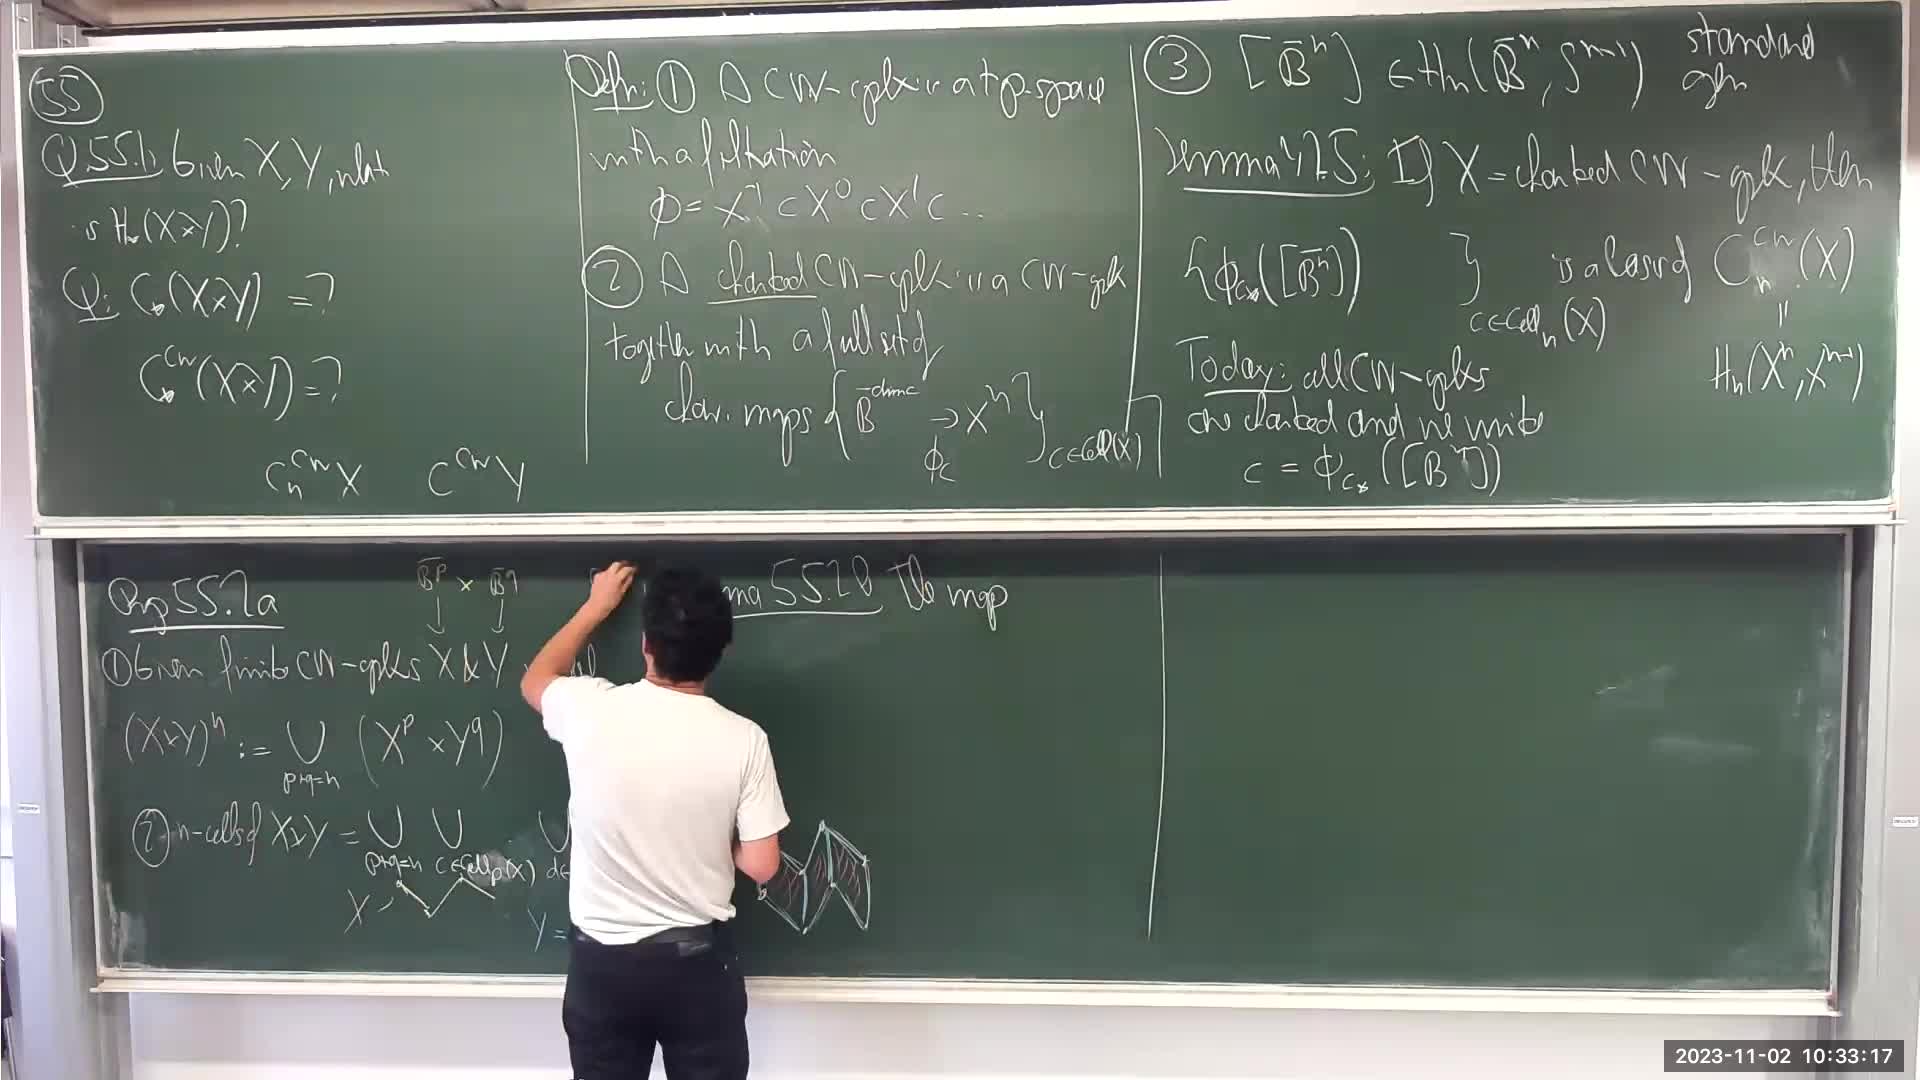 55
Q55.1: Given X, Y, what
is Hn(X×Y)?
Q: C*(X×Y) = ?
C*^CW(X×Y) = ?
Cn^CW X C^CW Y
Defn: ① A CW-cplx is a top. space
with a filtration
∅ = X^-1 ⊂ X^0 ⊂ X^1 ⊂ ...
② A charted CW-cplx is a CW-cplx
together with a full set of
char. maps { B̄^dim c → X^n }c∈Cell(X)
ϕc
③ [B̄^n] ∈ Hn(B̄^n, S^n-1) standard
gen
Lemma 47.5: If X = charted CW-cplx, then
{ϕc*([B̄^n])}c∈Celln(X) is a basis of Cn^CW(X)
=
Hn(X^n, X^n-1)
Today: all CW-cplxs
are charted and we write
c = ϕc*([B̄^n])
Prop 55.2a
B̄^p × B̄^q
↓ ↓
① Given finite CW-cplxs X & Y
(X×Y)^n := ∪ (X^p × Y^q)
p+q=n
② n-cells of X×Y = ∪ ∪ ∪
p+q=n c∈Cellp(X) d∈
X =
Y =
55.2b The map
2023-11-02 10:33:17